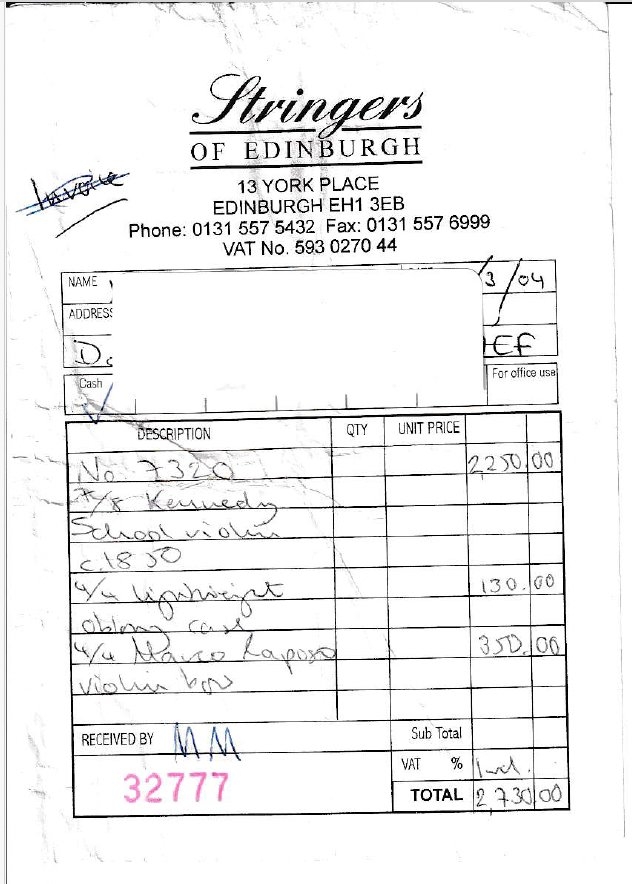 Stringers
OF EDINBURGH
Invoice
13 YORK PLACE
EDINBURGH EH1 3EB
Phone: 0131 557 5432 Fax: 0131 557 6999
VAT No. 593 0270 44
NAME /3/04
ADDRESS
EF
Cash ✓ For office use
DESCRIPTION QTY UNIT PRICE
No. 7320 2,250.00
7/8 Kennedy
School violin
c.1850
4/4 lightweight 130.00
oblong case
4/4 Marco Raposo 350.00
violin bow
RECEIVED BY MM Sub Total
VAT % Incl.
32777
TOTAL 2,730.00